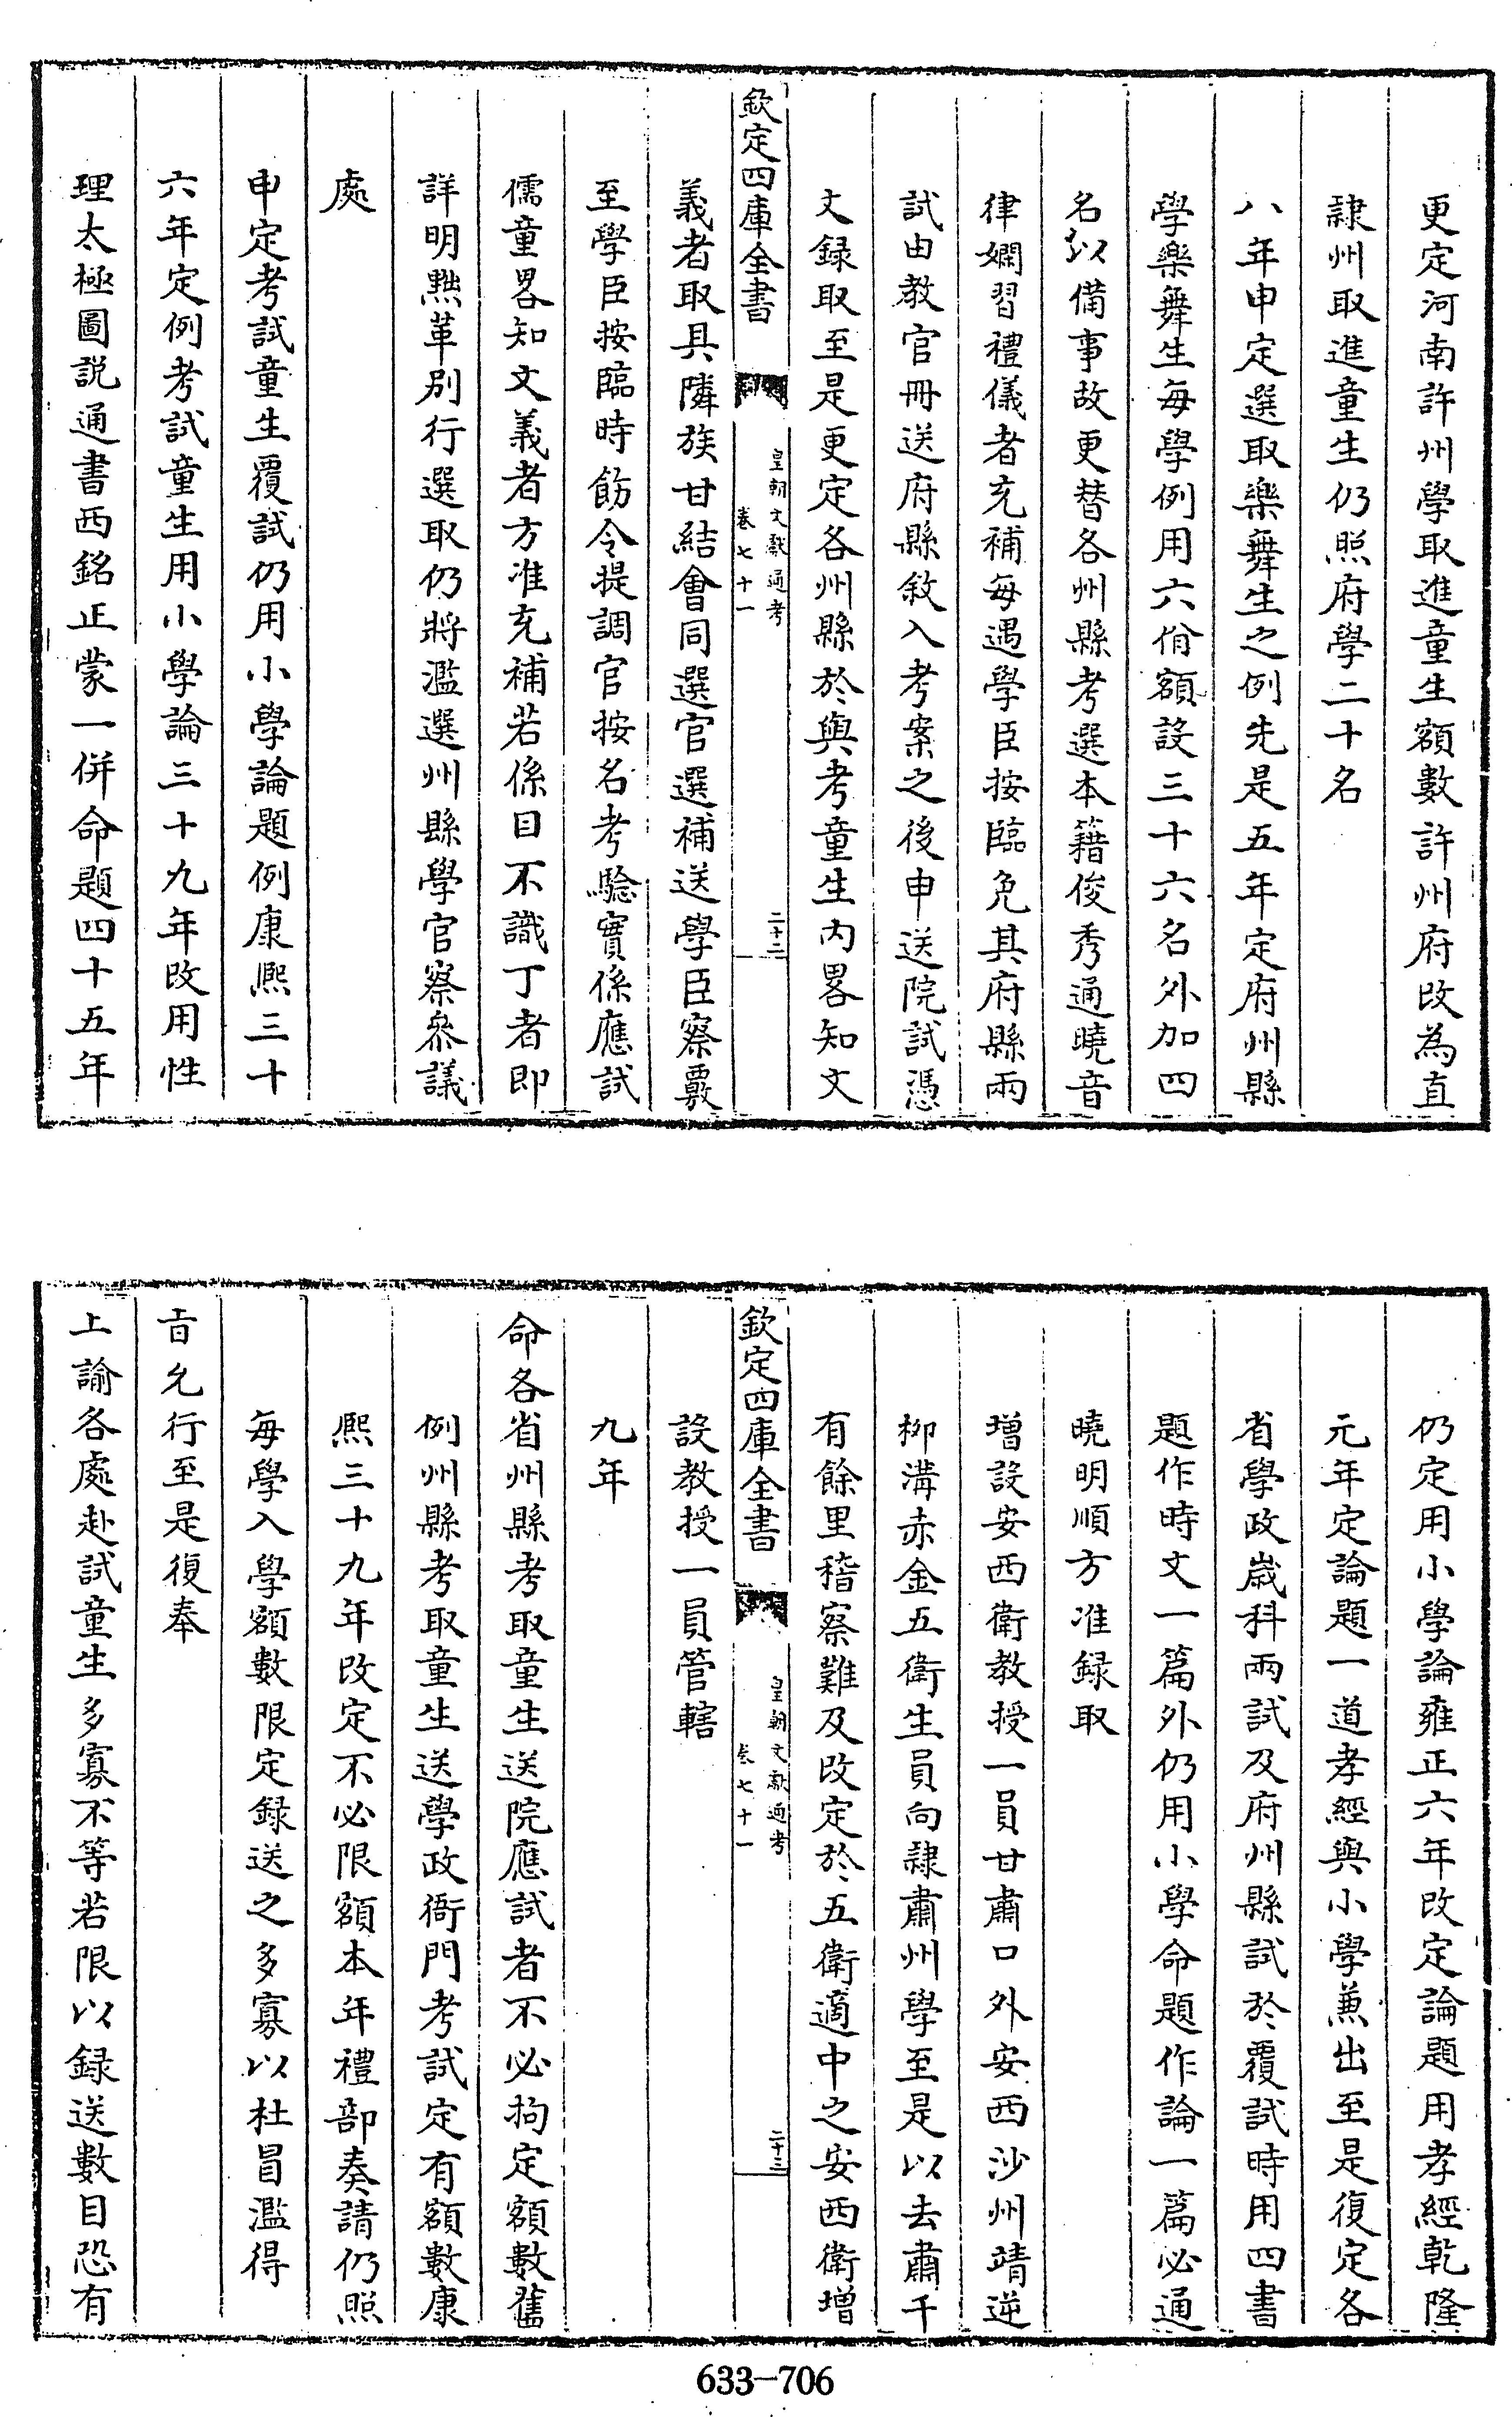 更定河南許州學取進童生額數許州府改為直
隷州取進童生仍照府學二十名
八年申定選取樂舞生之例先是五年定府州縣
學樂舞生每學例用六佾額設三十六名外加四
名以備事故更替各州縣考選本籍俊秀通曉音
律嫻習禮儀者充補每遇學臣按臨免其府縣兩
試由教官冊送府縣敘入考案之後申送院試憑
文録取至是更定各州縣於與考童生内畧知文
欽定四庫全書
皇朝文獻通考
卷七十一
二十二
義者取具隣族甘結會同選官選補送學臣察覈
至學臣按臨時飭令提調官按名考驗實係應試
儒童畧知文義者方准充補若係目不識丁者即
詳明黜革别行選取仍將濫選州縣學官察叅議
處
申定考試童生覆試仍用小學論題例康熙三十
六年定例考試童生用小學論三十九年改用性
理太極圖説通書西銘正蒙一併命題四十五年
仍定用小學論雍正六年改定論題用孝經乾隆
元年定論題一道孝經與小學兼出至是復定各
省學政嵗科兩試及府州縣試於覆試時用四書
題作時文一篇外仍用小學命題作論一篇必通
曉明順方准録取
增設安西衛教授一員甘肅口外安西沙州靖逆
柳溝赤金五衛生員向隷肅州學至是以去肅千
有餘里稽察難及改定於五衛適中之安西衛增
欽定四庫全書
皇朝文獻通考
卷七十一
二十三
設教授一員管轄
九年
命各省州縣考取童生送院應試者不必拘定額數舊
例州縣考取童生送學政衙門考試定有額數康
熙三十九年改定不必限額本年禮部奏請仍照
每學入學額數限定録送之多寡以杜冒濫得
㫖允行至是復奉
上諭各處赴試童生多寡不等若限以録送數目恐有
633-706